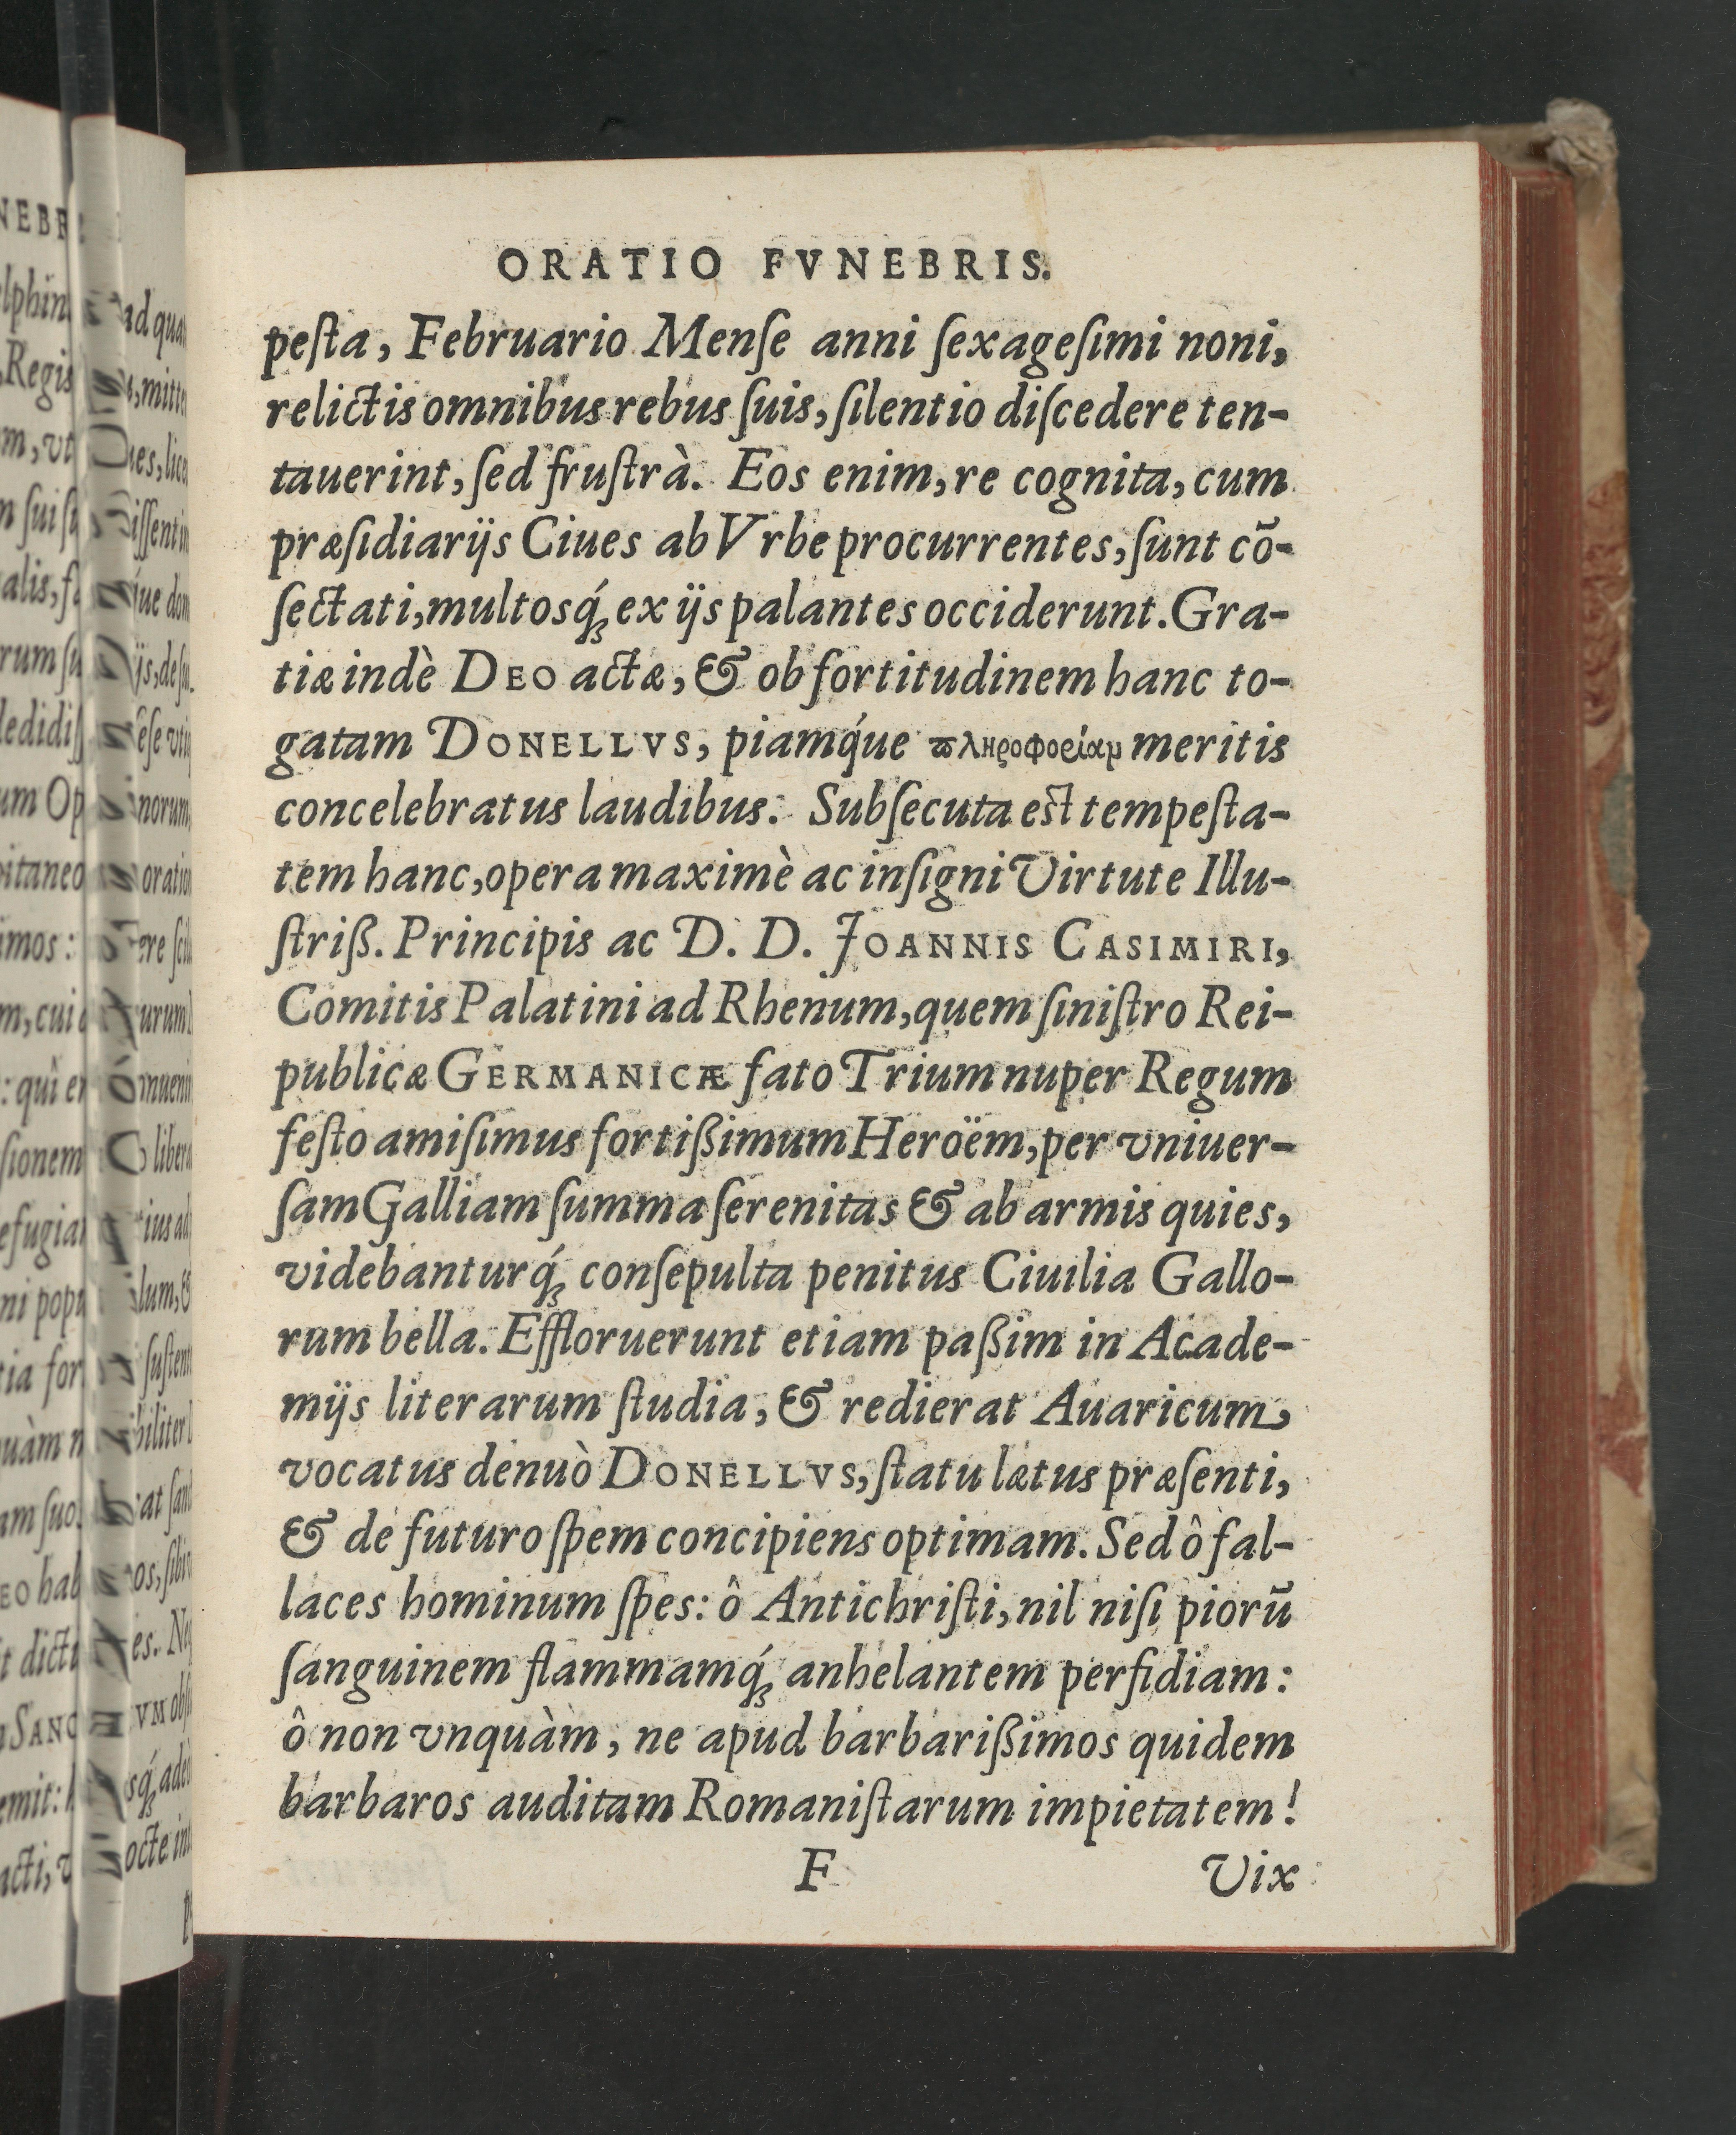 ORATIO FVNEBRIS.
peſta, Februario Menſe anni ſexageſimi noni,
relictis omnibus rebus ſuis, ſilentio diſcedere ten-
tauerint, ſed fruſtrà. Eos enim, re cognita, cum
præſidiarijs Ciues ab Vrbe procurrentes, ſunt cõ-
ſectati, multosq́ꝫ ex ijs palantes occiderunt. Gra-
tiæ indè DEO actæ, & ob fortitudinem hanc to-
gatam DONELLVS, piamq́ue ϖληροφορίαμ meritis
concelebratus laudibus. Subſecuta eſt tempeſta-
tem hanc, opera maximè ac inſigni Virtute Illu-
ſtriß. Principis ac D. D. JOANNIS CASIMIRI,
Comitis Palatini ad Rhenum, quem ſiniſtro Rei-
publicæ GERMANICÆ fato Trium nuper Regum
feſto amiſimus fortißimum Heroëm, per vniuer-
ſam Galliam ſumma ſerenitas & ab armis quies,
videbanturq́ꝫ conſepulta penitus Ciuilia Gallo-
rum bella. Effloruerunt etiam paßim in Acade-
mijs literarum ſtudia, & redierat Auaricum,
vocatus denuò DONELLVS, ſtatu lætus præſenti,
& de futuro ſpem concipiens optimam. Sed ô fal-
laces hominum ſpes: ô Antichriſti, nil niſi piorũ
ſanguinem flammamq́ꝫ anhelantem perfidiam:
ô non vnquàm, ne apud barbarißimos quidem
barbaros auditam Romaniſtarum impietatem!
F Vix